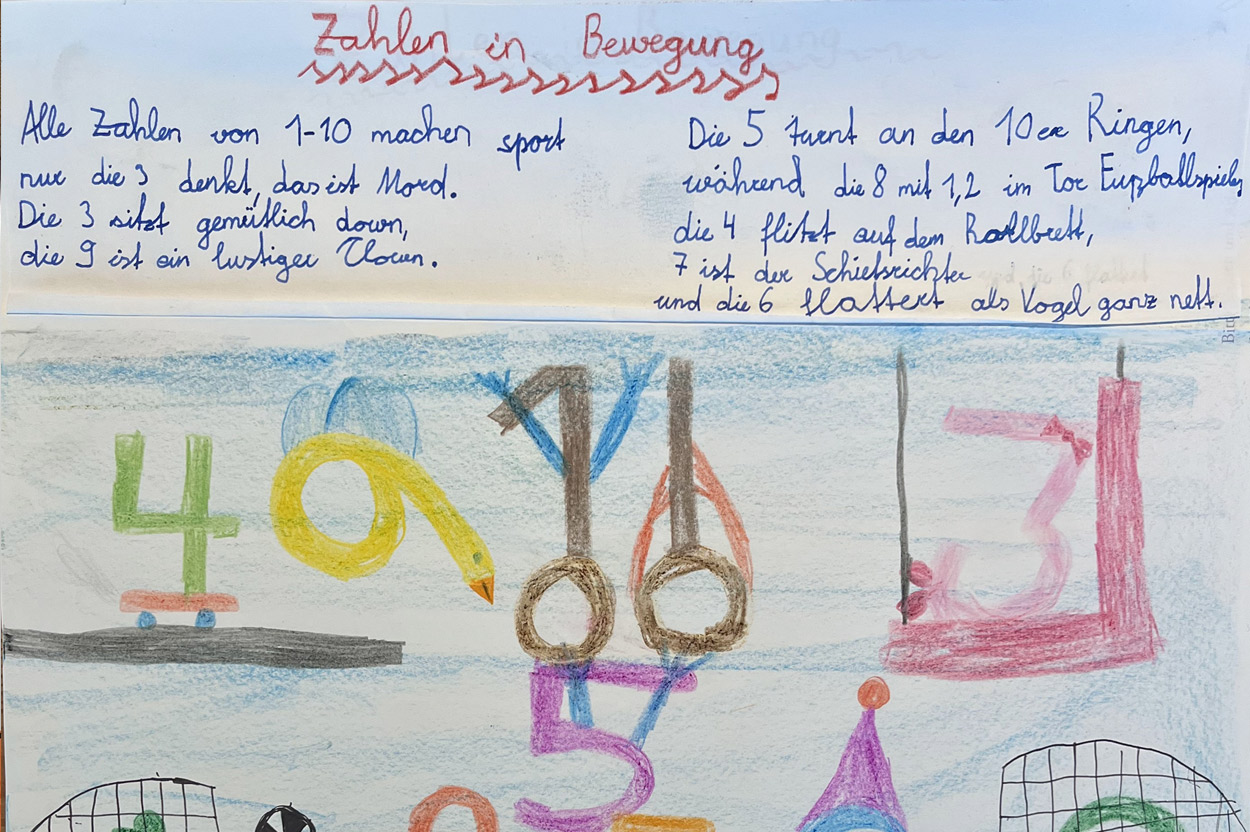 Zahlen in Bewegung
Alle Zahlen von 1-10 machen sport
nur die 3 denkt, das ist Mord.
Die 3 sitzt gemütlich down,
die 9 ist ein lustiger Clown.
Die 5 turnt an den 10er Ringen,
während die 8 mit 1,2 im Tor Fußballspielen,
die 4 flitzt auf dem Rollbrett,
7 ist der Schiefsrichter
und die 6 flattert als Vogel ganz nett.